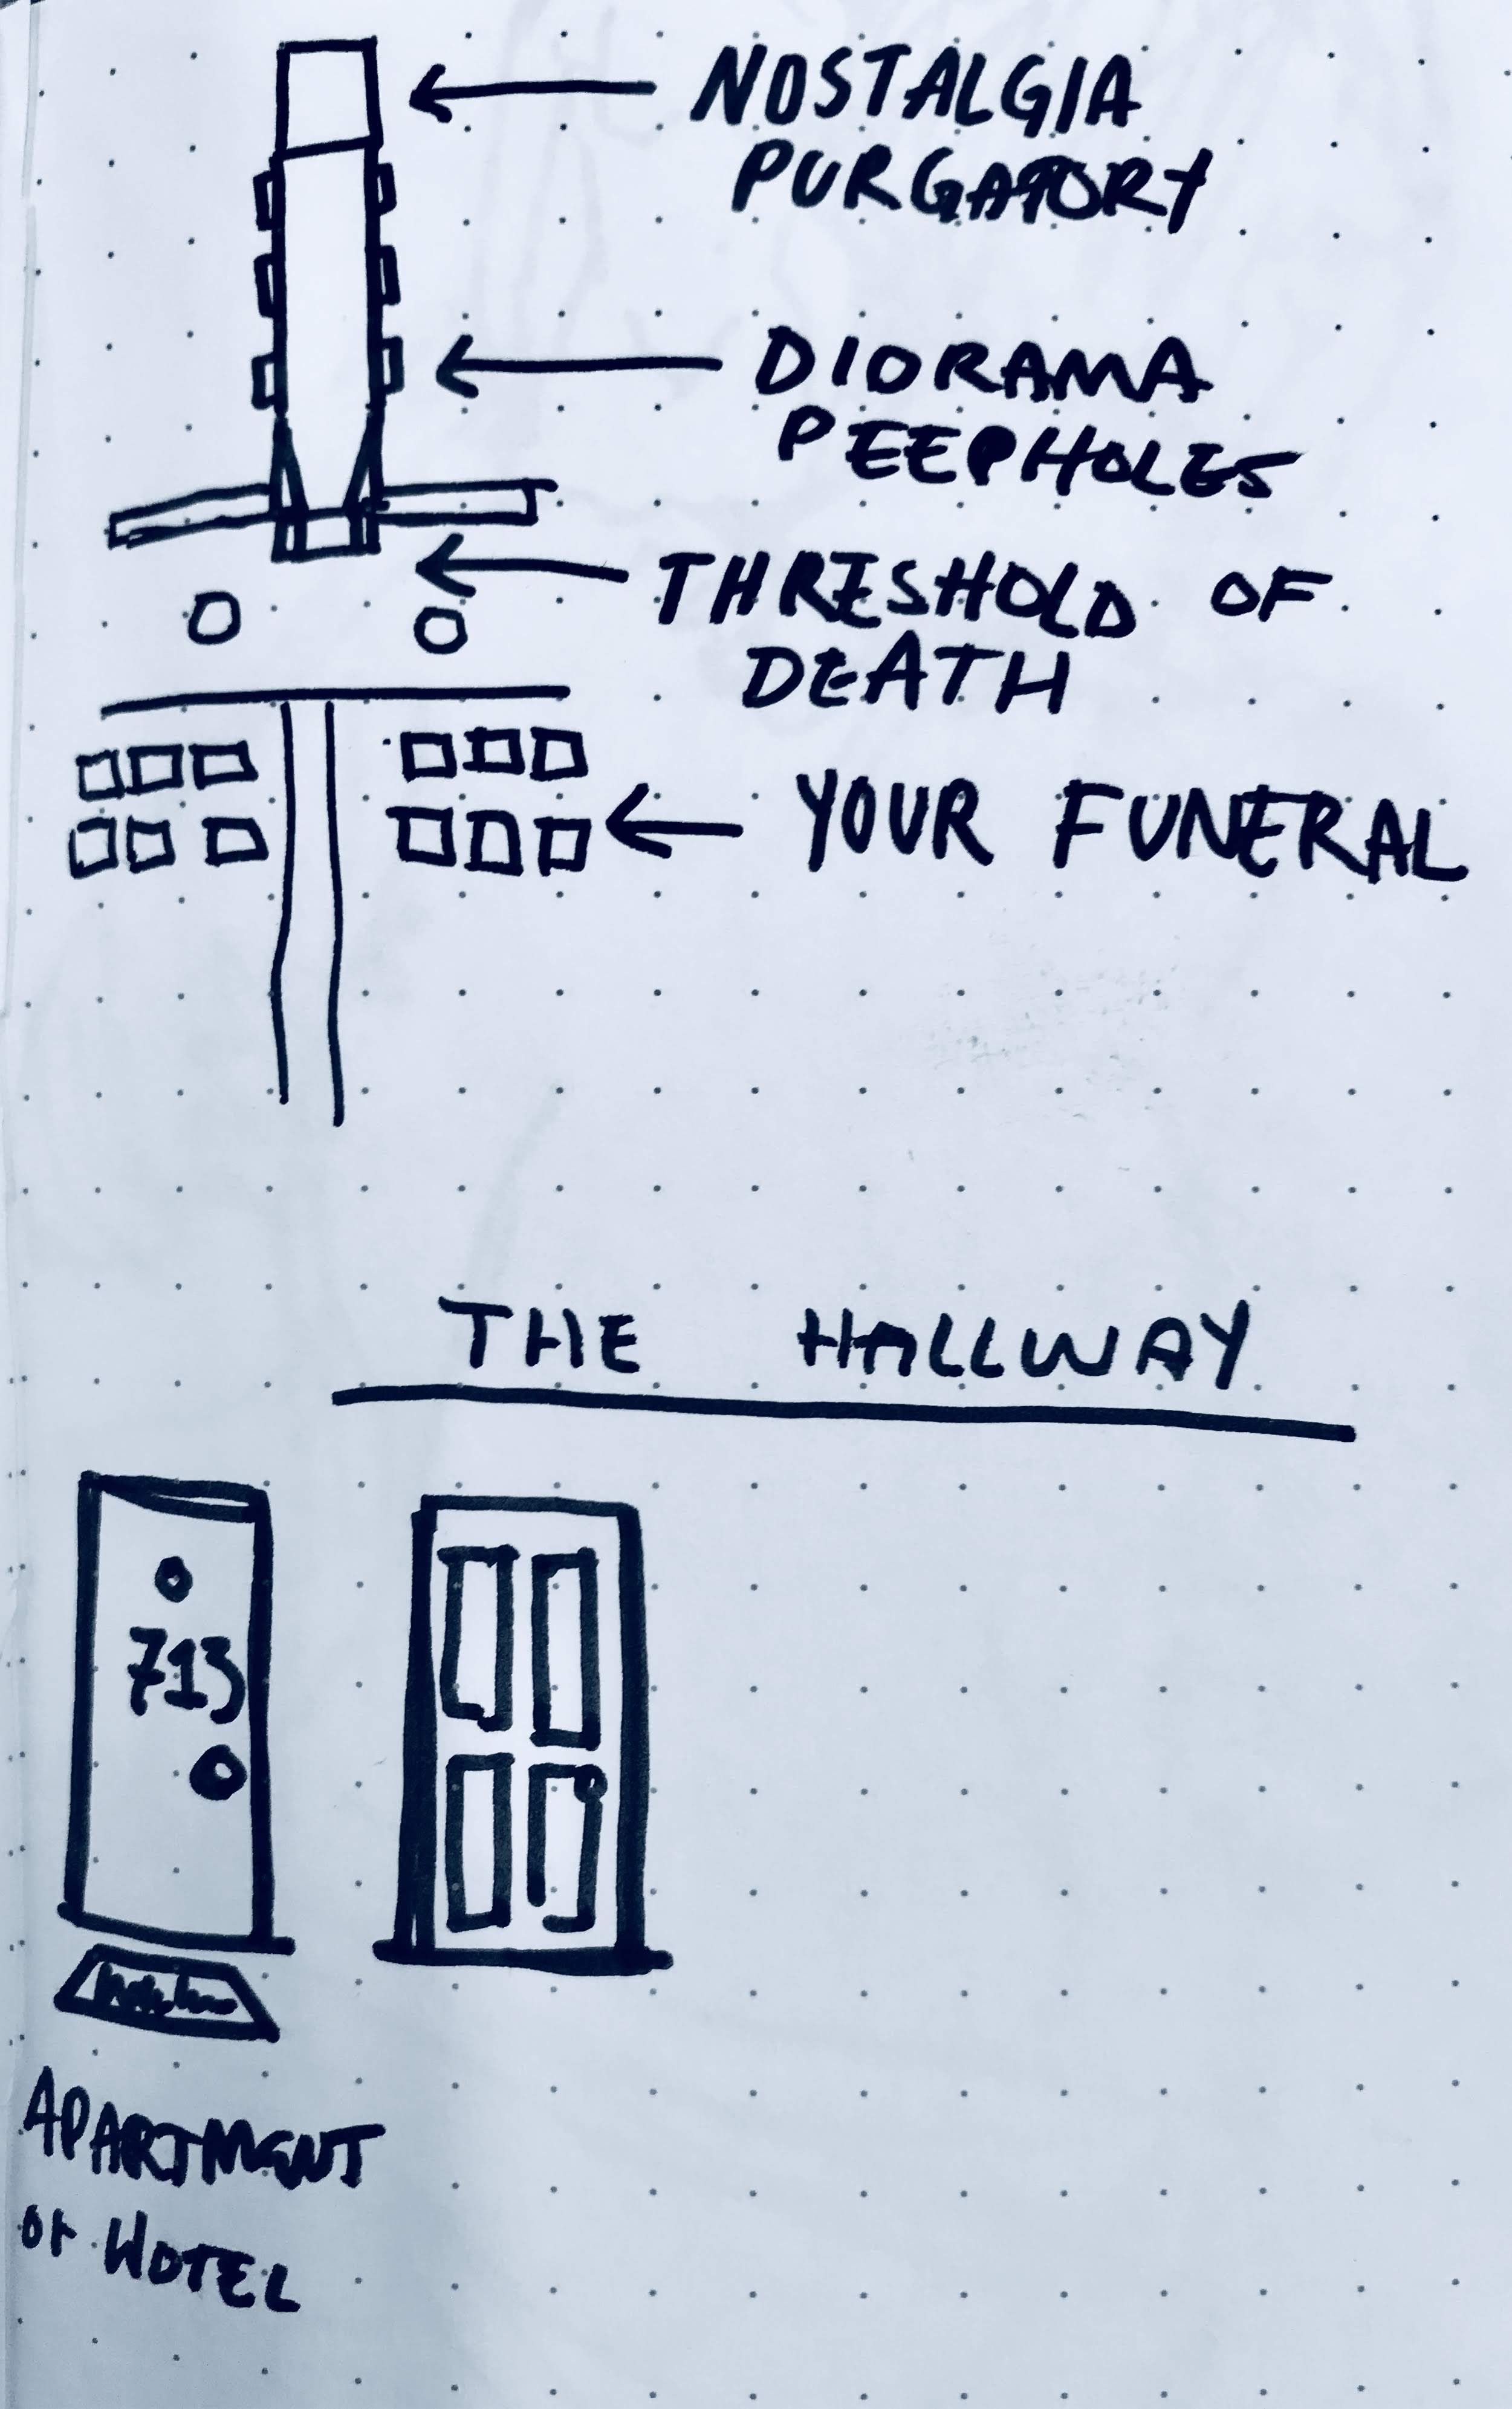 NOSTALGIA
PURGATORY
DIORAMA
PEEPHOLES
THRESHOLD OF
DEATH
YOUR FUNERAL
THE HALLWAY
713
APARTMENT
or HOTEL